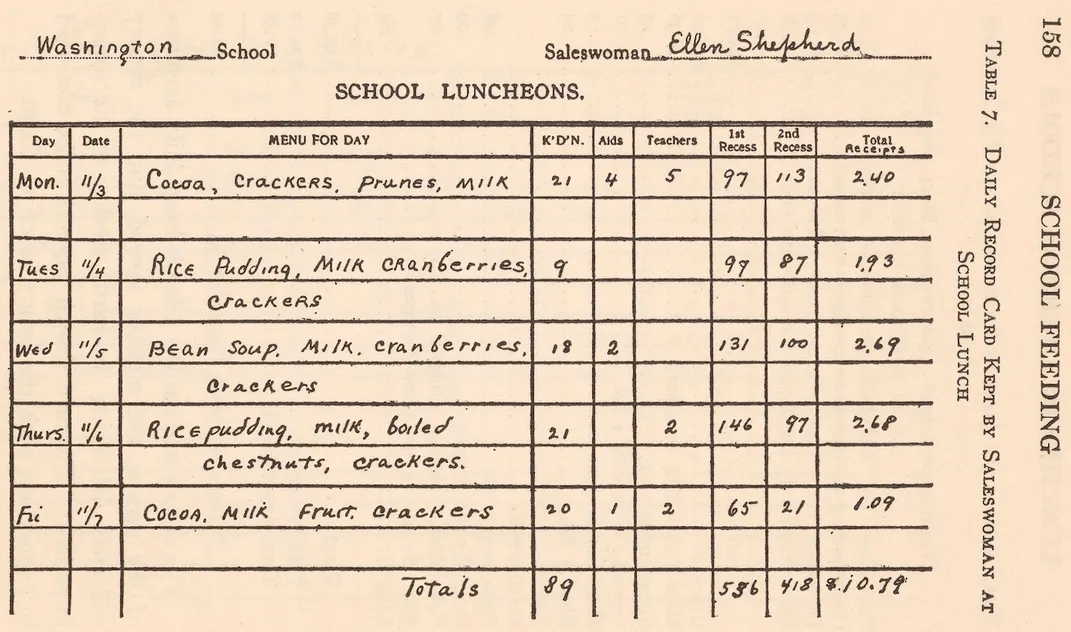 158 SCHOOL FEEDING
TABLE 7. DAILY RECORD CARD KEPT BY SALESWOMAN AT
SCHOOL LUNCH
Washington School Saleswoman Ellen Shepherd
SCHOOL LUNCHEONS.
Day Date MENU FOR DAY K'D'N. Aids Teachers 1st Recess 2nd Recess Total Receipts
Mon. 11/3 Cocoa, Crackers, Prunes, Milk 21 4 5 97 113 2.40
Tues 11/4 Rice Pudding, Milk Cranberries, 9 97 87 1.93
Crackers
Wed 11/5 Bean Soup. Milk. Cranberries, 18 2 131 100 2.69
Crackers
Thurs. 11/6 Rice pudding, milk, boiled 21 2 146 97 2.68
chestnuts, crackers.
Fri 11/7 Cocoa. Milk Fruit. Crackers 20 1 2 65 21 1.09
Totals 89 536 418 $10.79